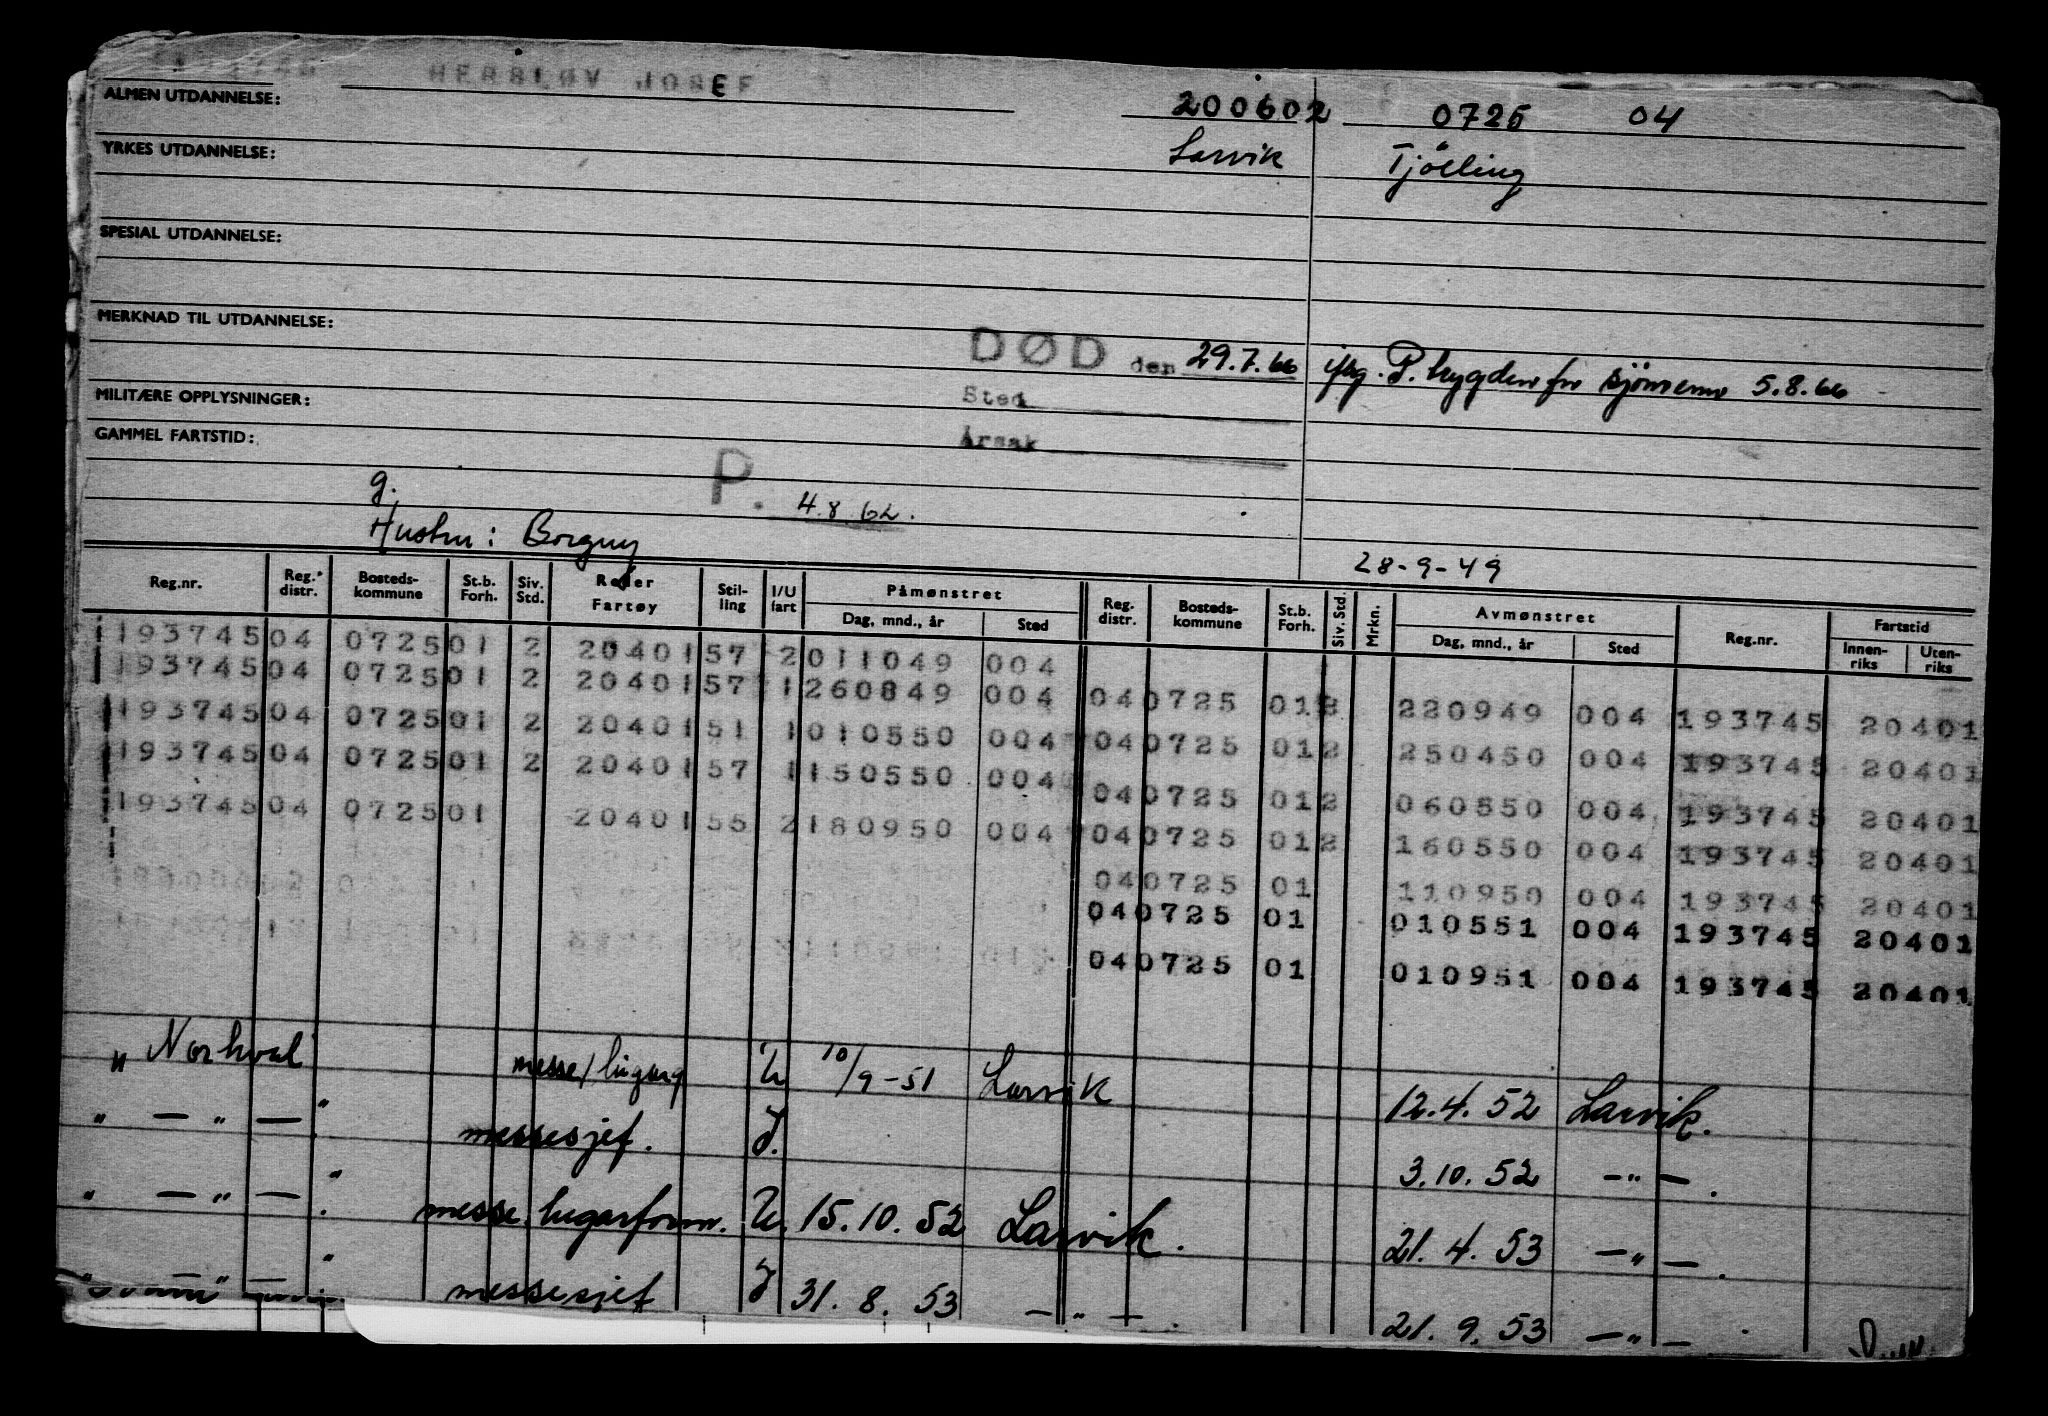 HERSLØV JOSEF
ALMEN UTDANNELSE: 200602 0725 04
YRKES UTDANNELSE: Larvik Tjölling
SPESIAL UTDANNELSE:
MERKNAD TIL UTDANNELSE:
DØD den 29.7.66 P. trygden for sjömenn 5.8.66
MILITÆRE OPPLYSNINGER: Sted
GAMMEL FARTSTID: Årsak
g. P. 4.8.62.
Hustru: Borguy
28-9-49
Reg.nr. Reg. distr. Bosteds-kommune St.b. Forh. Siv. Std. Reder Fartøy Stil-ling I/U fart Påmønstret Dag, mnd., år Sted Reg. distr. Bosteds-kommune St.b. Forh. Siv. Std. Mrkn. Avmønstret Dag, mnd., år Sted Reg.nr. Fartstid Innen-riks Uten-riks
193745 04 0725 01 2 20401 57 2 011049 004
193745 04 0725 01 2 20401 57 1 260849 004 04 0725 01 2 220949 004 193745 20401
193745 04 0725 01 2 20401 51 1 010550 004 04 0725 01 2 250450 004 193745 20401
193745 04 0725 01 2 20401 57 1 150550 004 04 0725 01 2 060550 004 193745 20401
193745 04 0725 01 20401 55 2 180950 004 04 0725 01 2 160550 004 193745 20401
04 0725 01 110950 004 193745 20401
04 0725 01 010551 004 193745 20401
04 0725 01 010951 004 193745 20401
"Norhval" messe/lugarg U 10/9-51 Larvik 12.4.52 Larvik.
" — " — ". messesjef. I. 3.10.52 — " — .
" — " — ". messe.lugarform. U. 15.10.52 Larvik. 21.4.53 — " — .
" — " — " messesjef I 31.8.53 — " — . 21.9.53 — " — .